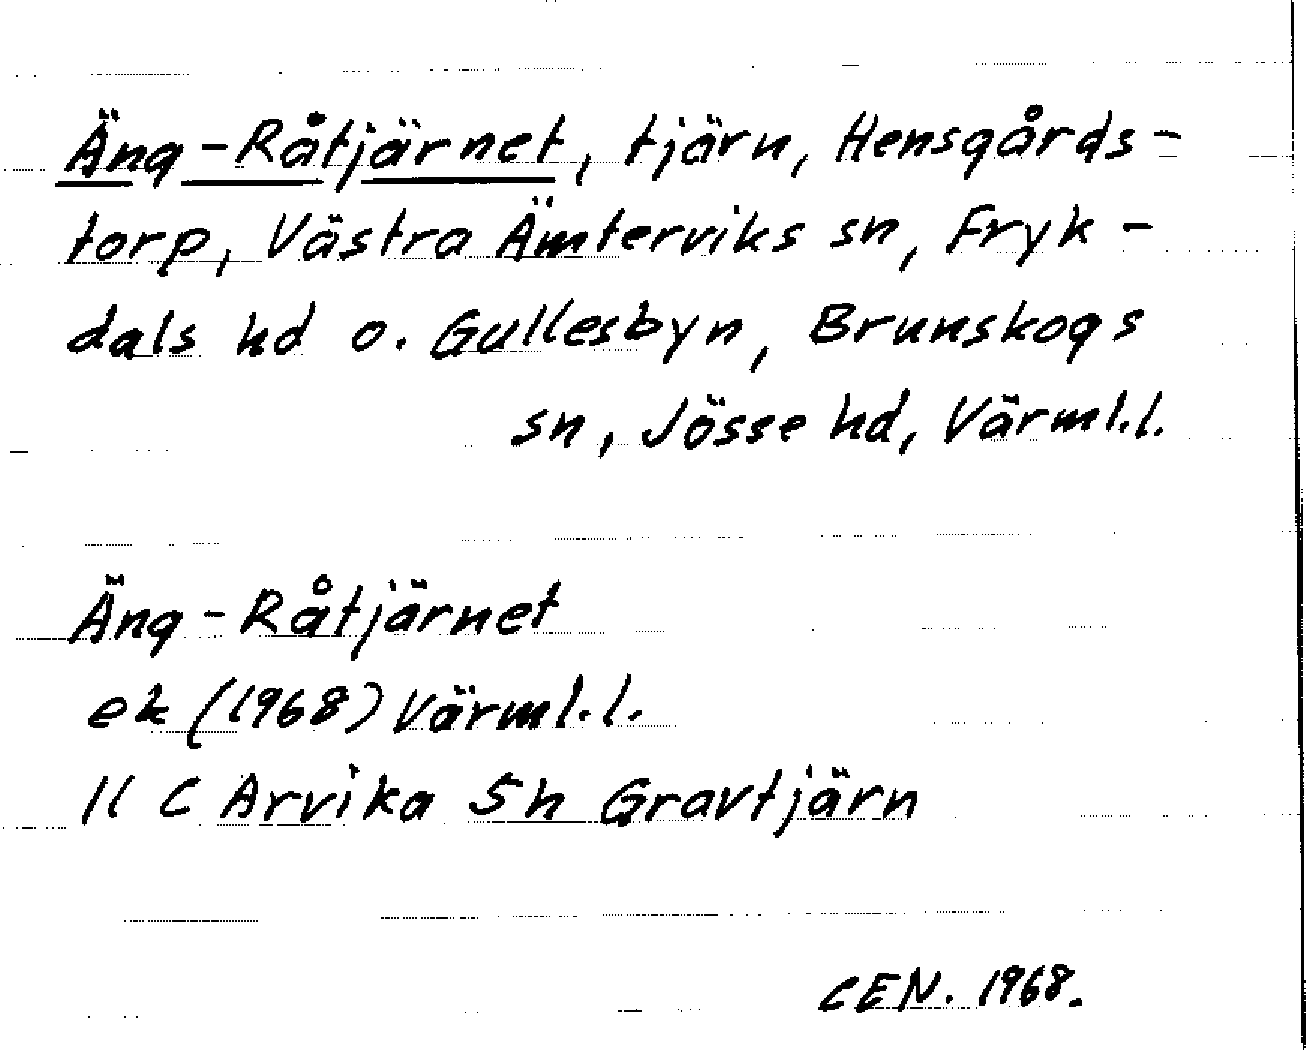 Äng-Råtjärnet, tjärn, Hensgårds-
torp, Västra Ämterviks sn, Fryk-
dals hd o. Gullesbyn, Brunskogs
sn, Jösse hd, Värml.l.
Äng-Råtjärnet
ek (1968) Värml.l.
11 C Arvika 5h Gravtjärn
CEN. 1968.